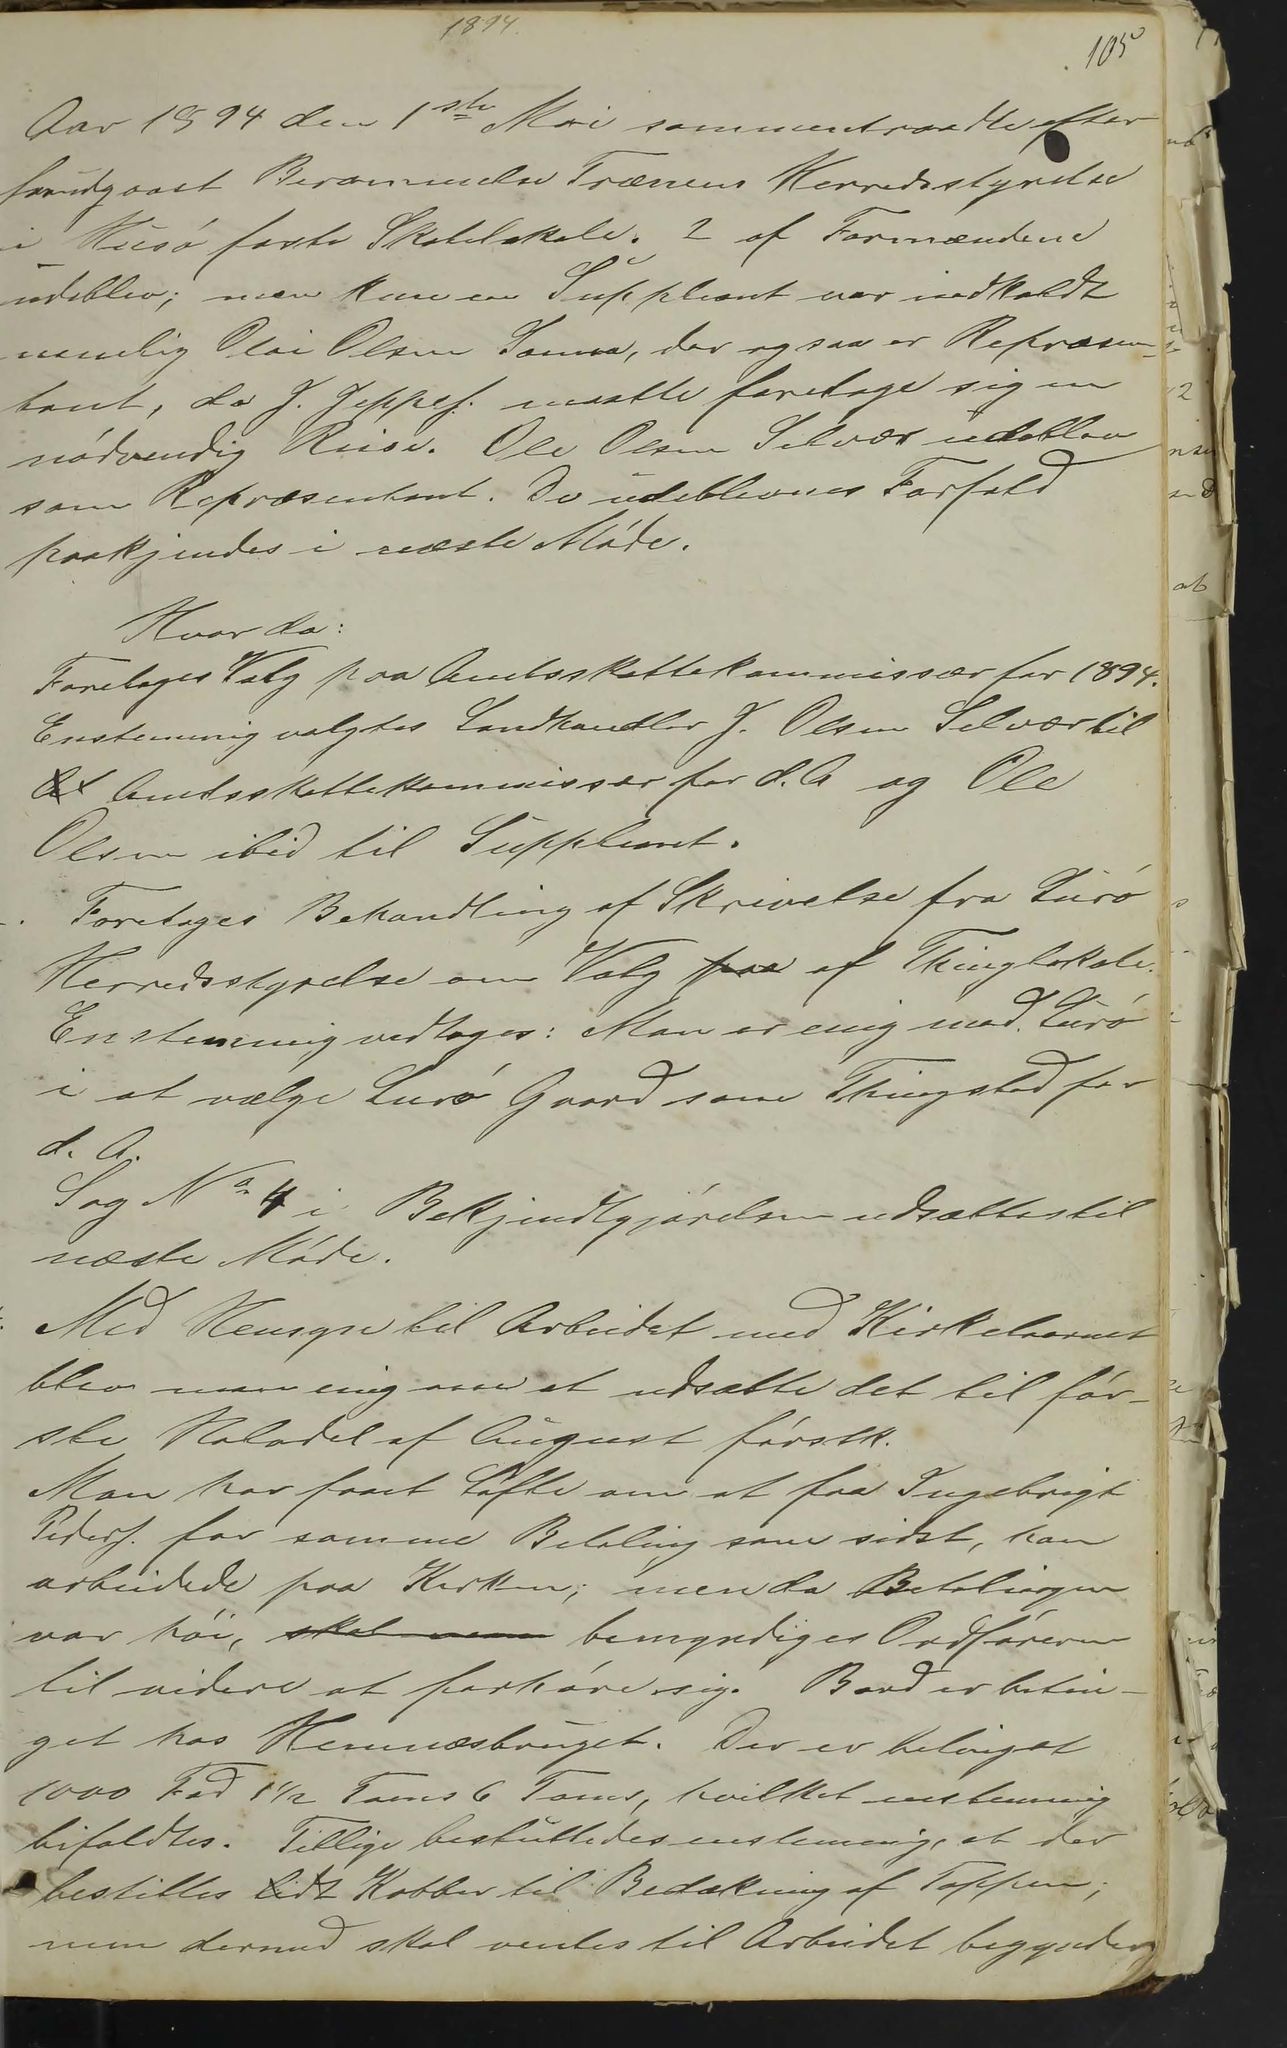 1894.
105
Aar 1894 den 1ste Mai sammentraadte efter
forudgaaet Berammelse Trænens Herredsstyrelse
i Husø faste Skolelokale. 2 af Formændene
udeblev; men kun en Suppleant var indkaldt
nemlig Oloi Olsen Sanna, der ogsaa er Repræsen-
tant, da J. Jeppes. maatte foretage sig en
nødvendig Reise. Ole Olsen Selvær udeblev
som Repræsentant. De udeblevnes Forfald
paakjendes i næste Møde.
Hvor da:
Foretages Valg paa Amtsskattekommissær for 1894.
Enstemmig valgtes Landhandler J. Olsen Selvær til
Amtsskattekommissær for d. A og Ole
Olsen ibid til Suppleant.
Foretages Behandling af Skrivelse fra Lurø
Herredsstyrelse om Valg paa af Thinglokale.
Enstemmig vedtages: Man er enig med Lurø
i at vælge Lurø Gaard som Thingsted for
d. A.
Sag No 4 i Bekjendtgjørelsen udsættes til
næste Møde.
Med Hensyn til Arbeidet med Kirketaarnet
blev man enig om at udsætte det til før-
ste Halvdel af August førstk.
Man har faaet Løfte om at faa Ingebrigt
Peders. for samme Betaling som sidst, han
arbeidede paa Kirken; men da Betalingen
var høi, skal man bemyndiges Ordføreren
til videre at forhøre sig. Bord er betin-
get hos Hemnæsbruget. Der er betinget
1000 Fod 1 1/2 Toms 6 Toms, hvilket enstemmig
bifaldtes. Tillige besluttedes enstemmig, at der
bestilles lidt Kobber til Bedækning af Toppen;
men dermed skal ventes til Arbeidet begynder